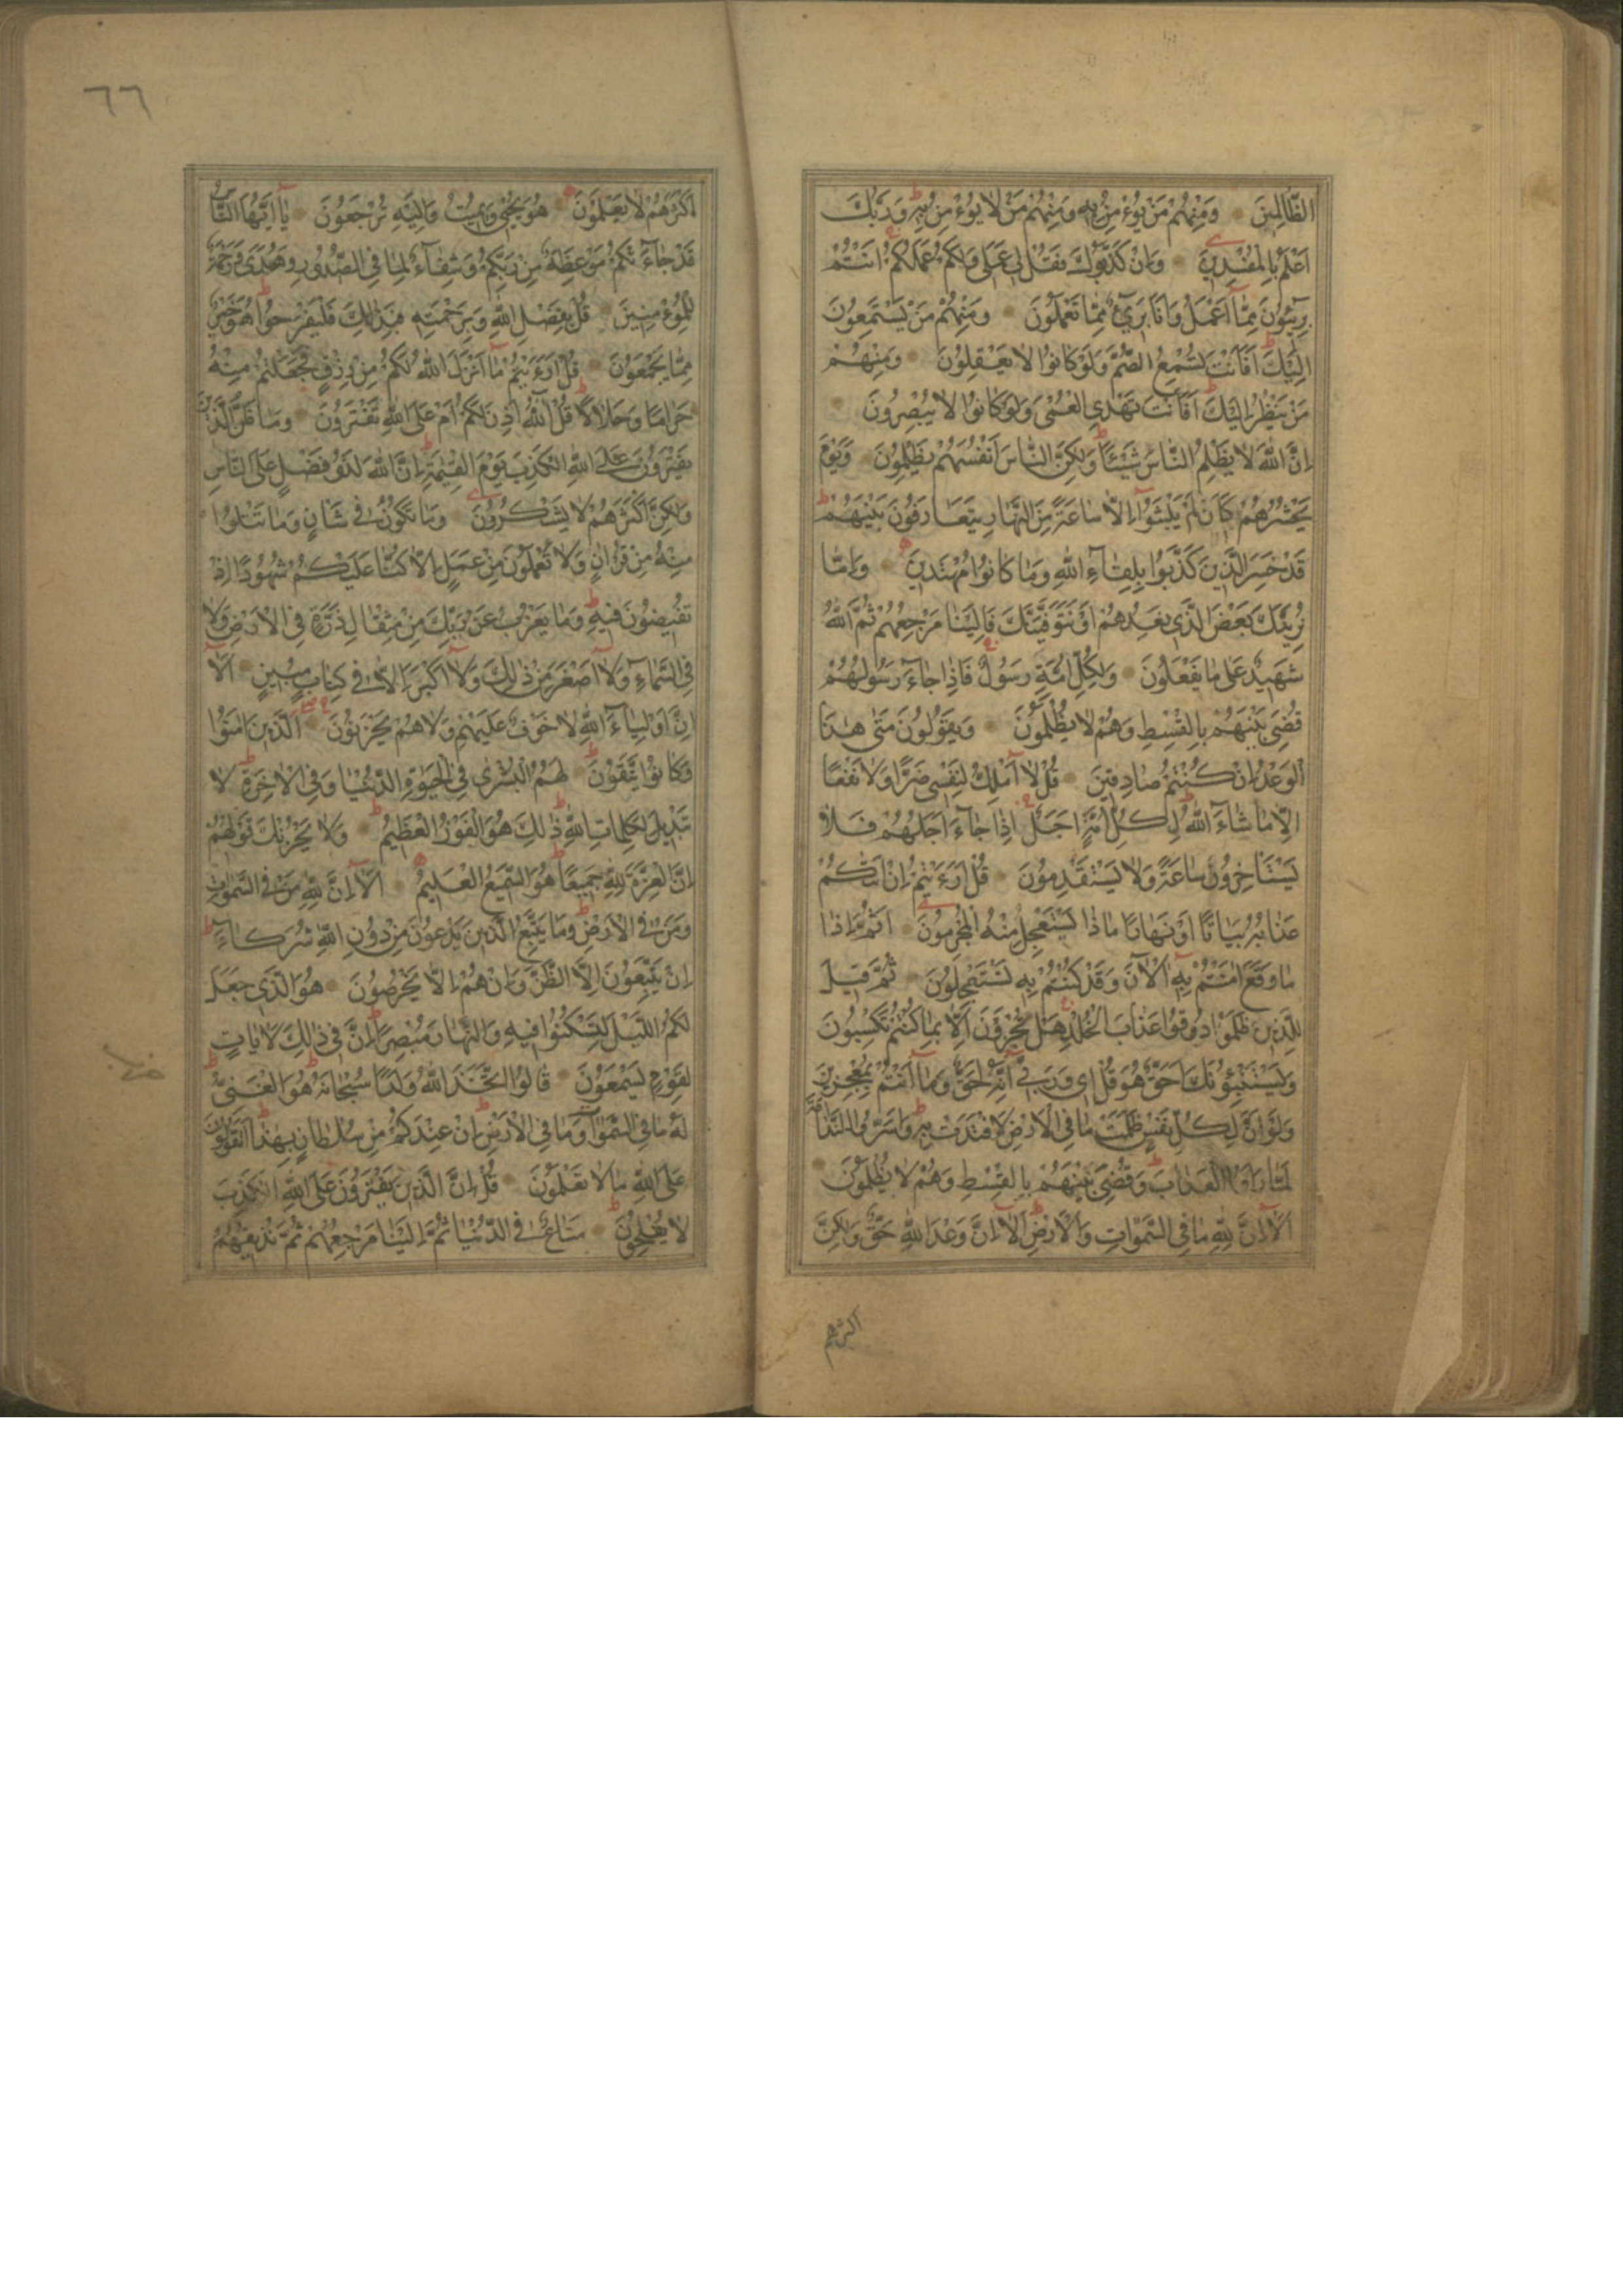 الظَّالِمِينَ وَمِنْهُمْ مَنْ يُؤْمِنُ بِهِ وَمِنْهُمْ مَنْ لَا يُؤْمِنُ بِهِ وَرَبُّكَ
اَعْلَمُ بِالْمُفْسِدِينَ وَاِنْ كَذَّبُوكَ فَقُلْ لِي عَمَلِي وَلَكُمْ عَمَلُكُمْ اَنْتُمْ
بَرِيئُونَ مِمَّا اَعْمَلُ وَاَنَا بَرِيءٌ مِمَّا تَعْمَلُونَ وَمِنْهُمْ مَنْ يَسْتَمِعُونَ
اِلَيْكَ اَفَاَنْتَ تُسْمِعُ الصُّمَّ وَلَوْ كَانُوا لَا يَعْقِلُونَ وَمِنْهُمْ
مَنْ يَنْظُرُ اِلَيْكَ اَفَاَنْتَ تَهْدِي الْعُمْيَ وَلَوْ كَانُوا لَا يُبْصِرُونَ
اِنَّ اللّٰهَ لَا يَظْلِمُ النَّاسَ شَيْئًا وَلٰكِنَّ النَّاسَ اَنْفُسَهُمْ يَظْلِمُونَ وَيَوْمَ
يَحْشُرُهُمْ كَاَنْ لَمْ يَلْبَثُوا اِلَّا سَاعَةً مِنَ النَّهَارِ يَتَعَارَفُونَ بَيْنَهُمْ
قَدْ خَسِرَ الَّذِينَ كَذَّبُوا بِلِقَاءِ اللّٰهِ وَمَا كَانُوا مُهْتَدِينَ وَاِمَّا
نُرِيَنَّكَ بَعْضَ الَّذِي نَعِدُهُمْ اَوْ نَتَوَفَّيَنَّكَ فَاِلَيْنَا مَرْجِعُهُمْ ثُمَّ اللّٰهُ
شَهِيدٌ عَلٰى مَا يَفْعَلُونَ وَلِكُلِّ اُمَّةٍ رَسُولٌ فَاِذَا جَاءَ رَسُولُهُمْ
قُضِيَ بَيْنَهُمْ بِالْقِسْطِ وَهُمْ لَا يُظْلَمُونَ وَيَقُولُونَ مَتٰى هٰذَا
الْوَعْدُ اِنْ كُنْتُمْ صَادِقِينَ قُلْ لَا اَمْلِكُ لِنَفْسِي ضَرًّا وَلَا نَفْعًا
اِلَّا مَا شَاءَ اللّٰهُ لِكُلِّ اُمَّةٍ اَجَلٌ اِذَا جَاءَ اَجَلُهُمْ فَلَا
يَسْتَاْخِرُونَ سَاعَةً وَلَا يَسْتَقْدِمُونَ قُلْ اَرَءَيْتُمْ اِنْ اَتٰيكُمْ
عَذَابُهُ بَيَاتًا اَوْ نَهَارًا مَاذَا يَسْتَعْجِلُ مِنْهُ الْمُجْرِمُونَ اَثُمَّ اِذَا
مَا وَقَعَ اٰمَنْتُمْ بِهِ اٰلْاٰنَ وَقَدْ كُنْتُمْ بِهِ تَسْتَعْجِلُونَ ثُمَّ قِيلَ
لِلَّذِينَ ظَلَمُوا ذُوقُوا عَذَابَ الْخُلْدِ هَلْ تُجْزَوْنَ اِلَّا بِمَا كُنْتُمْ تَكْسِبُونَ
وَيَسْتَنْبِئُونَكَ اَحَقٌّ هُوَ قُلْ اِي وَرَبِّي اِنَّهُ لَحَقٌّ وَمَا اَنْتُمْ بِمُعْجِزِينَ
وَلَوْ اَنَّ لِكُلِّ نَفْسٍ ظَلَمَتْ مَا فِي الْاَرْضِ لَافْتَدَتْ بِهِ وَاَسَرُّوا النَّدَامَةَ
لَمَّا رَاَوُا الْعَذَابَ وَقُضِيَ بَيْنَهُمْ بِالْقِسْطِ وَهُمْ لَا يُظْلَمُونَ
اَلَا اِنَّ لِلّٰهِ مَا فِي السَّمٰوَاتِ وَالْاَرْضِ اَلَا اِنَّ وَعْدَ اللّٰهِ حَقٌّ وَلٰكِنَّ
اكثرهم
٦٦
اَكْثَرَهُمْ لَا يَعْلَمُونَ هُوَ يُحْيِي وَيُمِيتُ وَاِلَيْهِ تُرْجَعُونَ يَا اَيُّهَا النَّاسُ
قَدْ جَاءَتْكُمْ مَوْعِظَةٌ مِنْ رَبِّكُمْ وَشِفَاءٌ لِمَا فِي الصُّدُورِ وَهُدًى وَرَحْمَةٌ
لِلْمُؤْمِنِينَ قُلْ بِفَضْلِ اللّٰهِ وَبِرَحْمَتِهِ فَبِذٰلِكَ فَلْيَفْرَحُوا هُوَ خَيْرٌ
مِمَّا يَجْمَعُونَ قُلْ اَرَءَيْتُمْ مَا اَنْزَلَ اللّٰهُ لَكُمْ مِنْ رِزْقٍ فَجَعَلْتُمْ مِنْهُ
حَرَامًا وَحَلَالًا قُلْ اٰللّٰهُ اَذِنَ لَكُمْ اَمْ عَلَى اللّٰهِ تَفْتَرُونَ وَمَا ظَنُّ الَّذِينَ
يَفْتَرُونَ عَلَى اللّٰهِ الْكَذِبَ يَوْمَ الْقِيٰمَةِ اِنَّ اللّٰهَ لَذُو فَضْلٍ عَلَى النَّاسِ
وَلٰكِنَّ اَكْثَرَهُمْ لَا يَشْكُرُونَ وَمَا تَكُونُ فِي شَاْنٍ وَمَا تَتْلُوا
مِنْهُ مِنْ قُرْاٰنٍ وَلَا تَعْمَلُونَ مِنْ عَمَلٍ اِلَّا كُنَّا عَلَيْكُمْ شُهُودًا اِذْ
تُفِيضُونَ فِيهِ وَمَا يَعْزُبُ عَنْ رَبِّكَ مِنْ مِثْقَالِ ذَرَّةٍ فِي الْاَرْضِ وَلَا
فِي السَّمَاءِ وَلَا اَصْغَرَ مِنْ ذٰلِكَ وَلَا اَكْبَرَ اِلَّا فِي كِتَابٍ مُبِينٍ اَلَا
اِنَّ اَوْلِيَاءَ اللّٰهِ لَا خَوْفٌ عَلَيْهِمْ وَلَا هُمْ يَحْزَنُونَ اَلَّذِينَ اٰمَنُوا
وَكَانُوا يَتَّقُونَ لَهُمُ الْبُشْرٰى فِي الْحَيٰوةِ الدُّنْيَا وَفِي الْاٰخِرَةِ لَا
تَبْدِيلَ لِكَلِمَاتِ اللّٰهِ ذٰلِكَ هُوَ الْفَوْزُ الْعَظِيمُ وَلَا يَحْزُنْكَ قَوْلُهُمْ
اِنَّ الْعِزَّةَ لِلّٰهِ جَمِيعًا هُوَ السَّمِيعُ الْعَلِيمُ اَلَا اِنَّ لِلّٰهِ مَنْ فِي السَّمٰوَاتِ
وَمَنْ فِي الْاَرْضِ وَمَا يَتَّبِعُ الَّذِينَ يَدْعُونَ مِنْ دُونِ اللّٰهِ شُرَكَاءَ
اِنْ يَتَّبِعُونَ اِلَّا الظَّنَّ وَاِنْ هُمْ اِلَّا يَخْرُصُونَ هُوَ الَّذِي جَعَلَ
لَكُمُ اللَّيْلَ لِتَسْكُنُوا فِيهِ وَالنَّهَارَ مُبْصِرًا اِنَّ فِي ذٰلِكَ لَاٰيَاتٍ
لِقَوْمٍ يَسْمَعُونَ قَالُوا اتَّخَذَ اللّٰهُ وَلَدًا سُبْحَانَهُ هُوَ الْغَنِيُّ
لَهُ مَا فِي السَّمٰوَاتِ وَمَا فِي الْاَرْضِ اِنْ عِنْدَكُمْ مِنْ سُلْطَانٍ بِهٰذَا اَتَقُولُونَ
عَلَى اللّٰهِ مَا لَا تَعْلَمُونَ قُلْ اِنَّ الَّذِينَ يَفْتَرُونَ عَلَى اللّٰهِ الْكَذِبَ
لَا يُفْلِحُونَ مَتَاعٌ فِي الدُّنْيَا ثُمَّ اِلَيْنَا مَرْجِعُهُمْ ثُمَّ نُذِيقُهُمُ